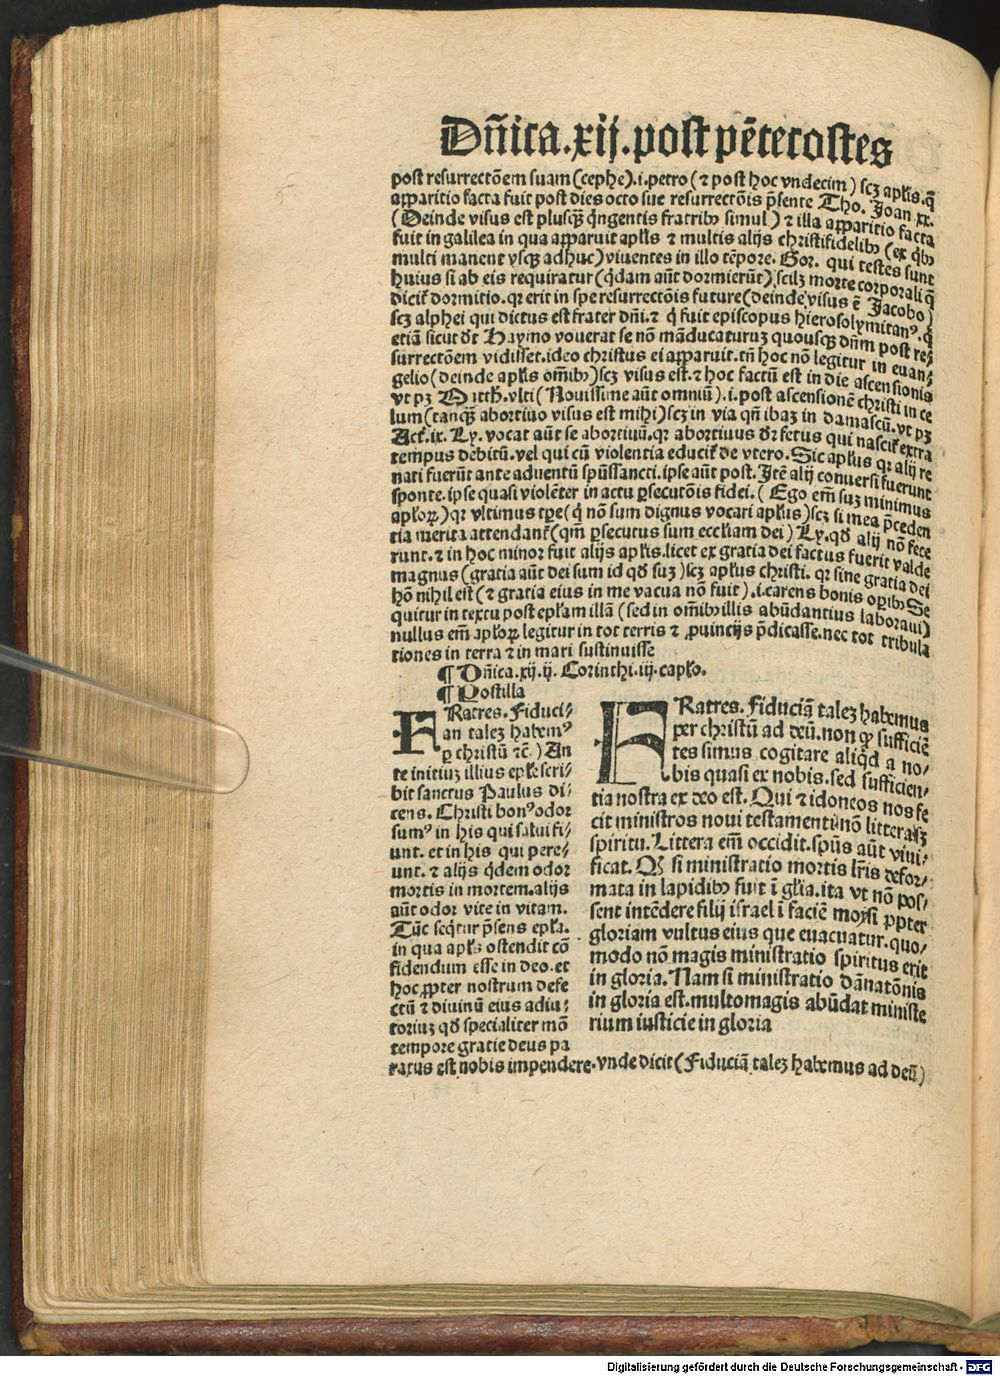 Dn̄ica.xij.post pētecostes
post resurrectōem suam (cephe).i.petro (⁊ post hoc vndecim) scꝫ apl̄is.q̄
apparitio facta fuit post dies octo sue resurrectōis p̄sente Tho. Joan xx.
(Deinde visus est plusqꝫ q̄ngentis fratribꝰ simul) ⁊ illa apparitio facta
fuit in galilea in qua apparuit apl̄is ⁊ multis alijs christifidelibꝰ (ex q̄bꝰ
multi manent vsqꝫ adhuc) viuentes in illo tēpore. Gor. qui testes sunt
huius si ab eis requiratur (q̄dam aūt dormierūt) scilꝫ morte corporali q̄
dicit̄ dormitio.qꝛ erit in spe resurrectōis future (deinde visus ē Jacobo)
scꝫ alphei qui dictus est frater dn̄i.⁊ q̄ fuit episcopus hierosolymitanꝰ.q̄
etiā sicut dt̄ Haymo vouerat se nō māducaturuꝫ quousqꝫ dn̄m post re⸗
surrectōem vidisset.ideo christus ei apparuit.tn̄ hoc nō legitur in euan⸗
gelio (deinde apl̄is om̄ibꝰ) scꝫ visus est.⁊ hoc factū est in die ascensionis
vt pꝫ Matth.vlti (Nouissime aūt omniū).i.post ascensionē christi in ce
lum (tanqꝫ abortiuo visus est mihi) scꝫ in via qn̄ ibaꝫ in damascū.vt pꝫ
Act̄.ix. Ly. vocat aūt se abortiuū.qꝛ abortiuus dr̄ fetus qui nascit̄ extra
tempus debitū.vel qui cū violentia educit̄ de vtero. Sic apl̄us qꝛ alij re
nati fuerūt ante aduentū spūssancti.ipse aūt post. Itē alij conuersi fuerunt
sponte.ipse quasi violēter in actu ꝑsecutōis fidei. (Ego em̄ suꝫ minimus
apl̄oꝝ) qꝛ vltimus tꝑe (q̄ nō sum dignus vocari apl̄us) scꝫ si mea p̄ceden
tia merita attendant̄ (qm̄ ꝑsecutus sum eccl̄iam dei) Ly. qd̄ alij nō fece
runt.⁊ in hoc minor fuit alijs apl̄is.licet ex gratia dei factus fuerit valde
magnus (gratia aūt dei sum id qd̄ suꝫ) scꝫ apl̄us christi. qꝛ sine gratia dei
hō nihil est (⁊ gratia eius in me vacua nō fuit).i.carens bonis oꝑibꝰ. Se
quitur in textu post epl̄am illā (sed in om̄ibꝰ illis abūdantius laboraui)
nullus em̄ apl̄oꝝ legitur in tot terris ⁊ ꝓuincijs p̄dicasse.nec tot tribula
tiones in terra ⁊ in mari sustinuisse
¶ Dn̄ica.xij.ij. Corinthi.iij.capl̄o.
¶ Postilla
FRatres. Fiduci⸗
an talez habemꝰ
ꝑ christū ⁊c̄.) An
te initiuꝫ illius epl̄e scri⸗
bit sanctus Paulus di⸗
cens. Christi bonꝰ odor
sumꝰ in his qui salui fi⸗
unt. et in his qui pere⸗
unt. ⁊ alijs q̄dem odor
mortis in mortem.alijs
aūt odor vite in vitam.
Tūc seq̄tur p̄sens epl̄a.
in qua apl̄s ostendit cō
fidendum esse in deo.et
hoc ꝓpter nostrum defe
ctū ⁊ diuinū eius adiu⸗
toriuꝫ qd̄ specialiter mō
tempore gratie deus pa
ratus est nobis impendere.vnde dicit (Fiduciā talez habemus ad deū)
FRatres. Fiduciā talez habemus
per christū ad deū.non qꝙ sufficiē
tes simus cogitare aliq̄d a no⸗
bis quasi ex nobis.sed sufficien⸗
tia nostra ex deo est. Qui ⁊ idoneos nos fe
cit ministros noui testamenti.nō littera sꝫ
spiritu. Littera em̄ occidit.spūs aūt viui⸗
ficat. Qꝙ si ministratio mortis lr̄is defor⸗
mata in lapidibꝰ fuit ī gl̄ia.ita vt nō pos⸗
sent intēdere filij israel ī faciē moysi ꝓpter
gloriam vultus eius que euacuatur.quo⸗
modo nō magis ministratio spiritus erit
in gloria. Nam si ministratio dānatōnis
in gloria est.multomagis abūdat ministe
rium iusticie in gloria
Digitalisierung gefördert durch die Deutsche Forschungsgemeinschaft - DFG